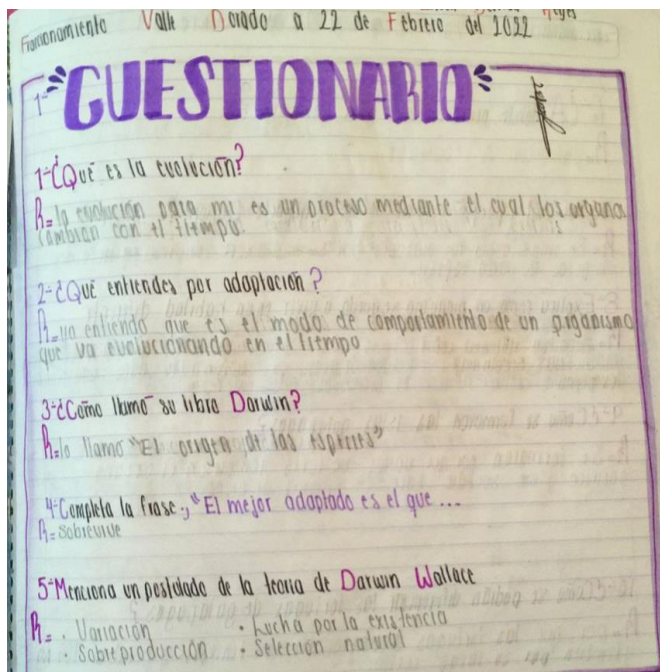 Fraccionamiento Valle Dorado a 22 de Febrero del 2022
1-"CUESTIONARIO"
1-¿Qué es la evolución?
R= la evolución para mi es un proceso mediante el cual los organos
cambian con el tiempo.
2-¿Qué entiendes por adaptación?
R= yo entiendo que es el modo de comportamiento de un organismo
que va evolucionando en el tiempo
3-¿Cómo llamo su libro Darwin?
R= lo llamo "El origen de las especies"
4-Completa la frase:, "El mejor adaptado es el que ...
R= Sobrevive
5-Menciona un postolado de la teoria de Darwin Wallace
R= · Variación · Lucha por la existencia
· Sobreproducción · Selección natural